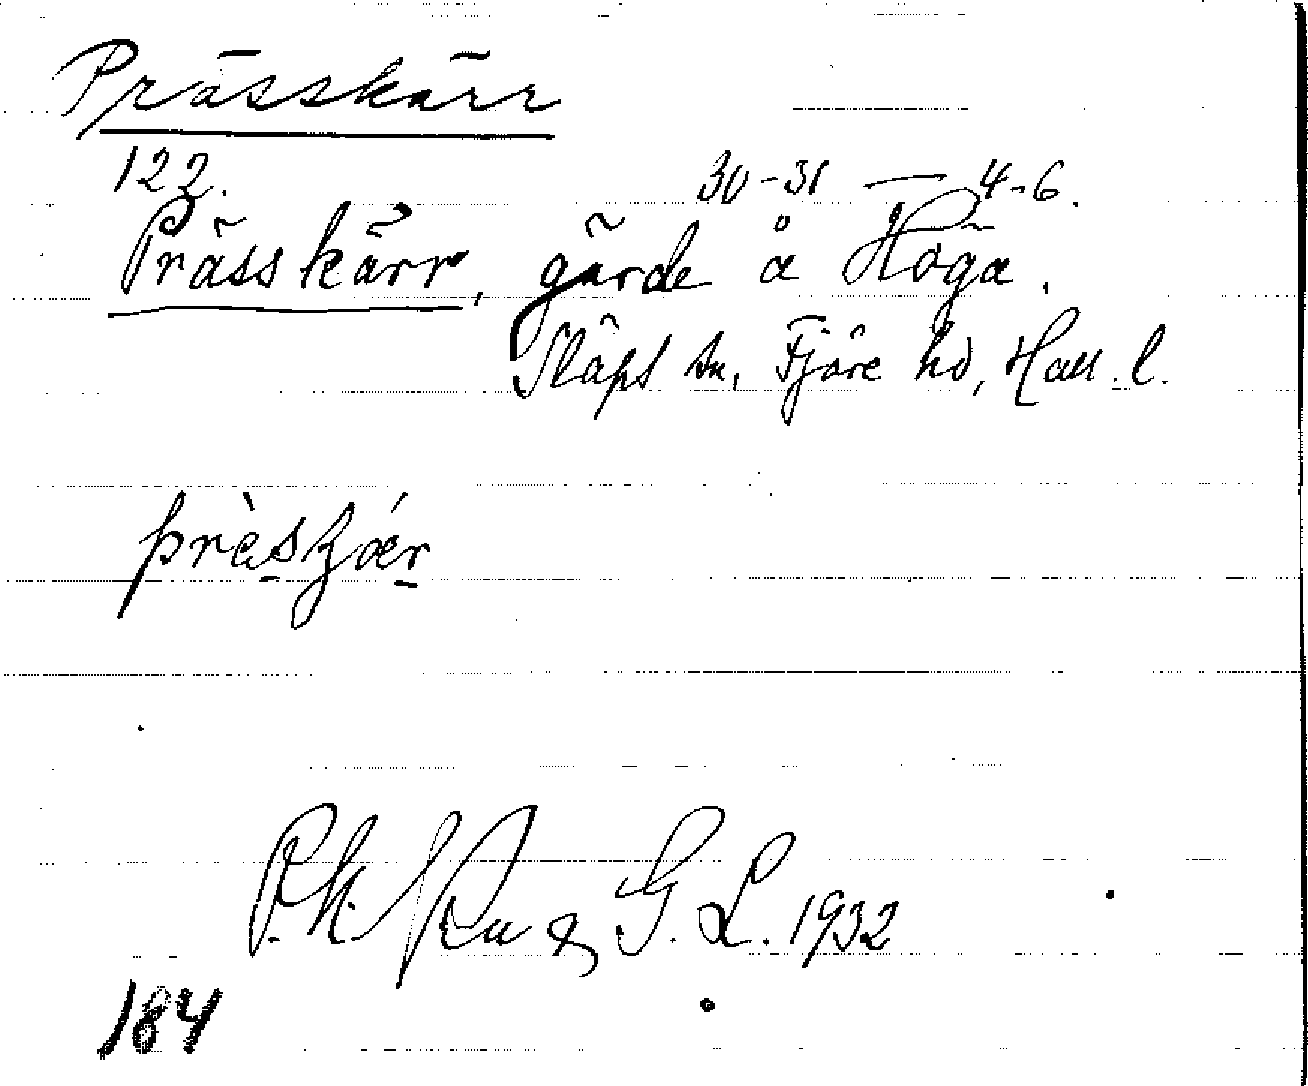 Prässkärr
122. 30-31 — 4-6.
Prässkärr, gärde å Höga.
Släps sn, Fjäre hd, Hall. l.
prὲskǽr
P.k. G. L. 1932
184